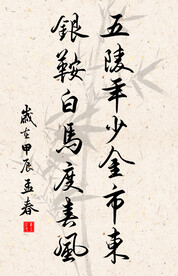 五陵年少金市東
銀鞍白馬度春風
歲在甲辰孟春